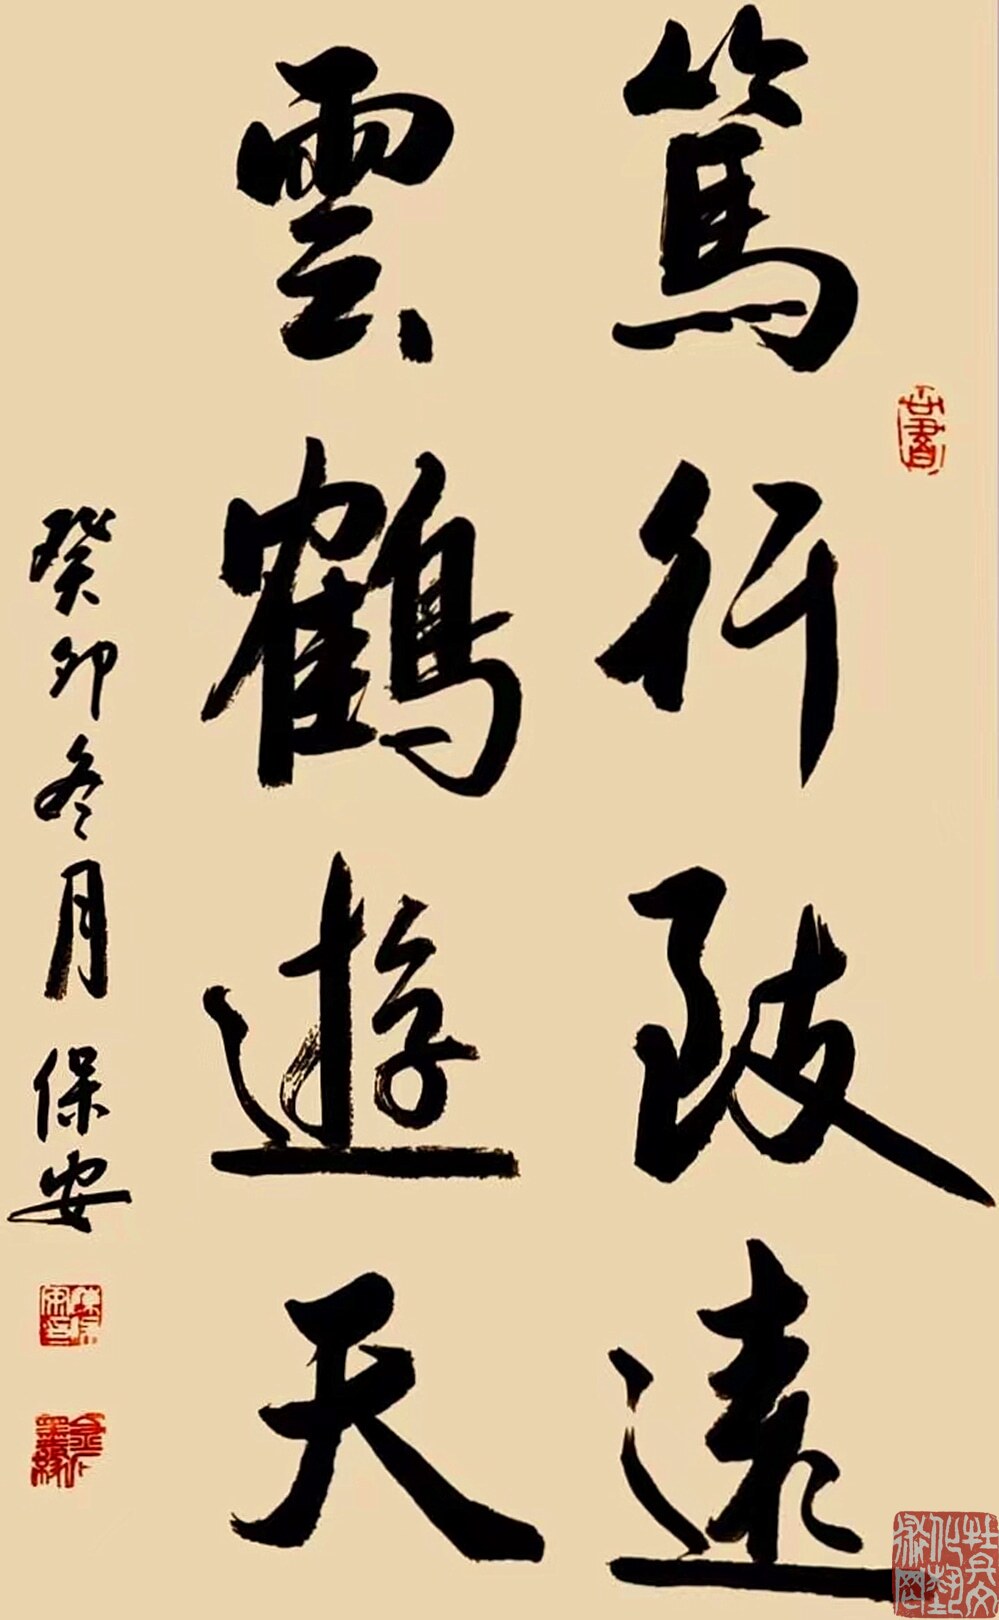 篤行致遠
雲鶴遊天
癸卯冬月保安